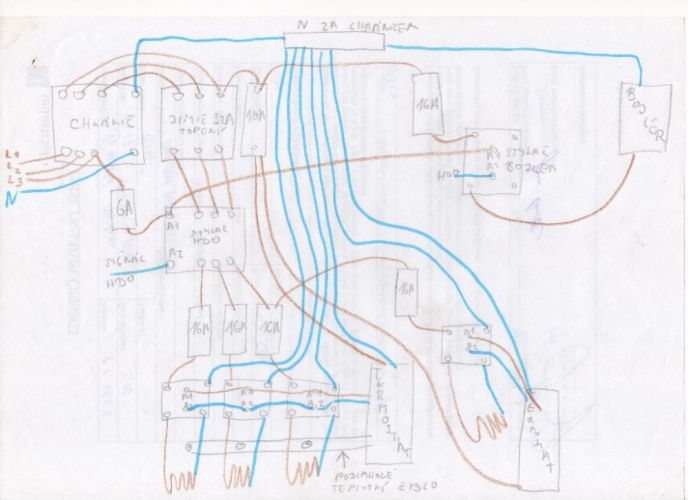 N ZA CHRÁNIČEM
CHRÁNIČ
JISTIČ 32A
TOPENÍ
10A
16A
BOJLER
L1
L2
L3
N
6A
STYKAČ
BOJLER
A1
A2
HDO
A1
A2
STYKAČ
HDO
SIGNÁL
HDO
16A
16A
16A
16A
A1
A2
A1
A2
A1
A2
A1
A2
TERMOSTAT
TERMOSTAT
PODLAHOVÉ
TEPLOTNÍ ČIDLO